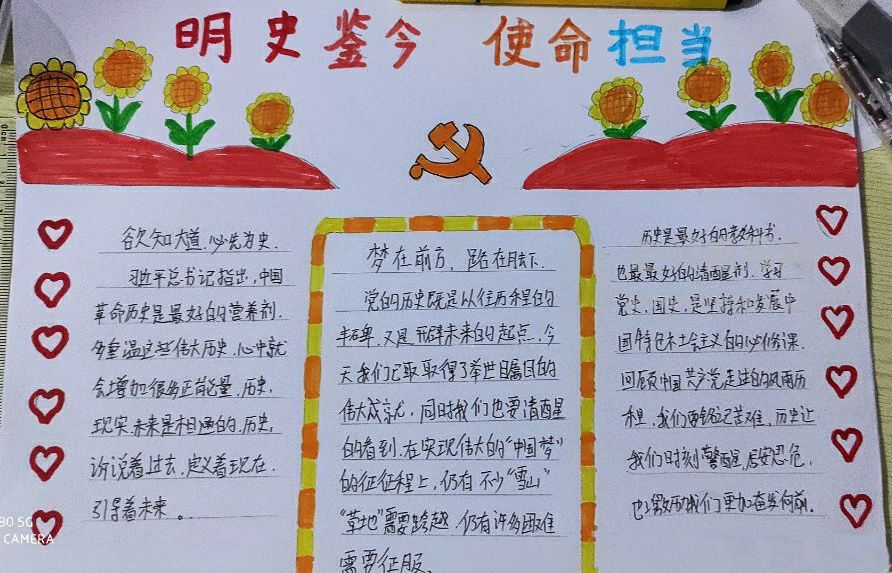 明史鉴今 使命担当
欲知大道，必先为史．
习近平总书记指出，中国
革命历史是最好的营养剂．
多重温这些伟大历史，心中就
会增加很多正能量，历史，
现实，未来是相通的，历史，
诉说着过去，定义着现在．
引导着未来。
梦在前方，路在脚下．
党的历史既是以往历程的
丰碑，又是开辟未来的起点，今
天我们已取取得了举世瞩目的
伟大成就，同时我们也要清醒
的看到，在实现伟大的“中国梦”
的征征程上，仍有不少“雪山”
“草地”需要跨越，仍有许多困难
需要征服、
历史是最好的教科书．
也最最好的清醒剂．学习
党史，国史，是坚持和发展中
国特色社会主义的必修课．
回顾中国共产党走过的风雨历
程，我们要铭记苦难，历史让
我们时刻警醒，居安思危，
也激励我们更加奋发向前．
80 5G
CAMERA